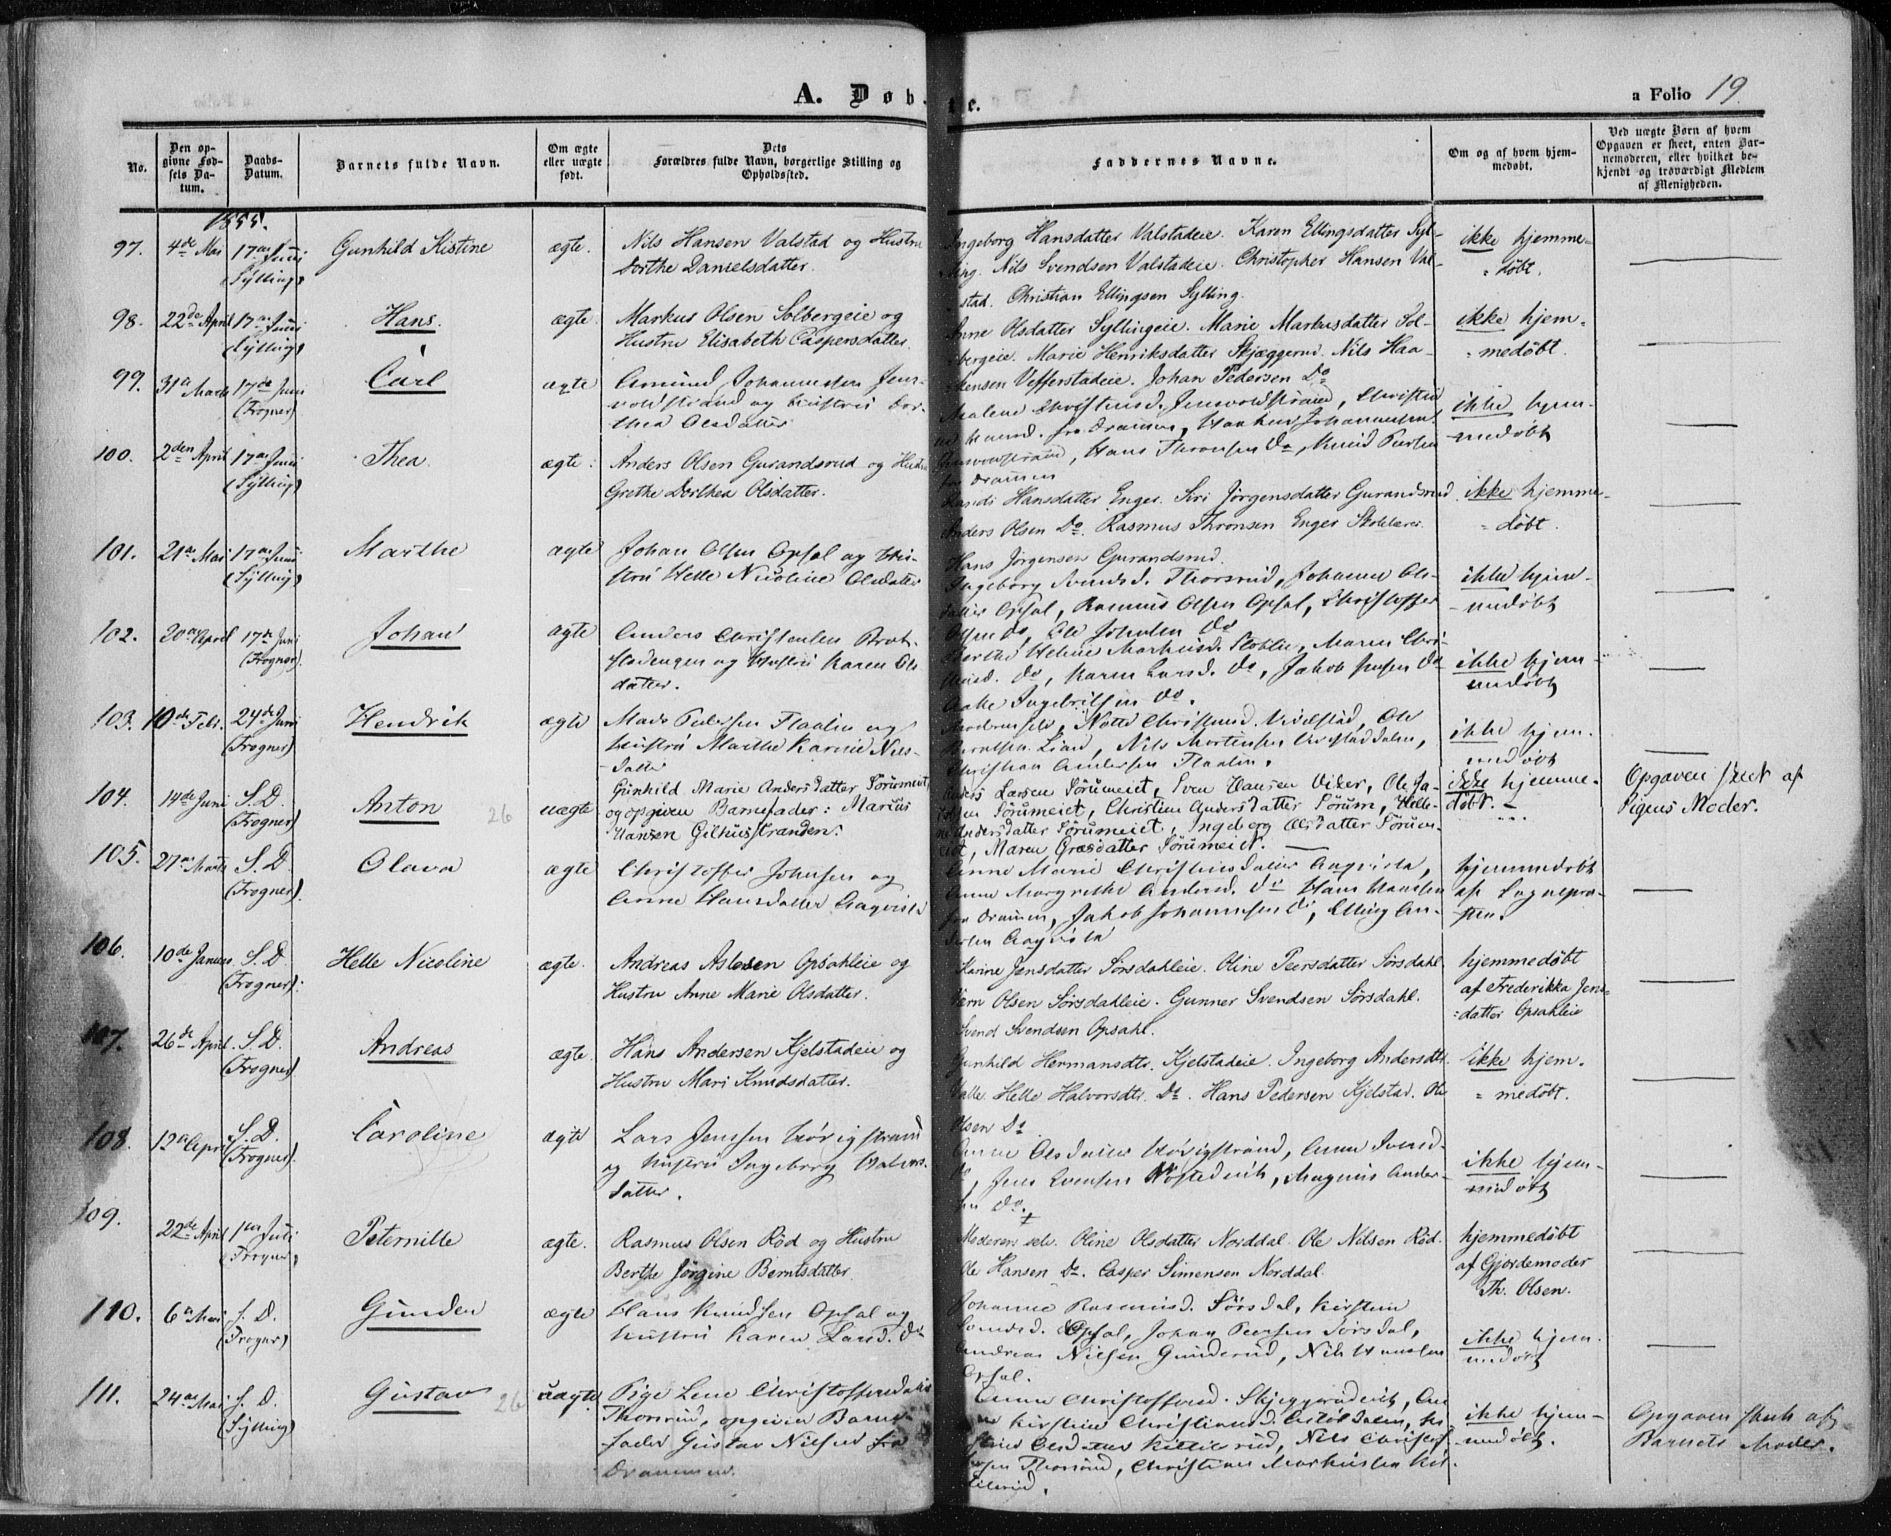 A. Døb-
te.
a Folio 19.
No.
Den op-
givne Fød-
sels Da-
tum.
Daabs-
Datum.
Barnets fulde Navn.
Om ægte
eller uægte
født.
Dets
Forældres fulde Navn, borgerlige Stilling og
Opholdssted.
Faddernes Navne.
Om og af hvem hjem-
medøbt.
Ved uægte Børn af hvem
Opgaven er skeet, enten Bar-
nemoderen, eller hvilket be-
kjendt og troværdigt Medlem
af Menigheden.
1855.
97. 4de Mai 17de Juni (Sylling) Gunhild Kistine ægte. Nils Hansen Valstad og Hustru
Dorthe Danielsdatter.
Ingeborg Hansdatter Valstadeie. Karen Ellingsdatter Syl-
ling. Nils Svendsen Valstadeie. Christopher Hansen Val-
stad. Christian Ellingsen Sylling.
ikke hjemme-
døbt.
98. 22de April 17de Juni (Sylling) Hans. ægte. Markus Olsen Solbergeie og
Hustru Elisabeth Caspersdatter
Anne Olsdatter Syllingeie. Marie Markusdatter Sol-
bergeie. Marie Henriksdatter Skjæggerud. Nils Haa-
kensen Vefferstadeie. Johan Pedersen Do
ikke hjem-
medøbt.
99. 31te Marts 17de Juni (Frogner) Carl ægte Amund Johannessen Jens-
voldstrand og Hustru Dor-
thea Olsdatter
Malene Christensd. Jensvoldstrand,
fra Drammen, Haaken Johannessen
Hans Thronsen Do,
fra Drammen
ikke hjem-
medøbt
100. 2den April 17de Juni (Sylling) Thea. ægte. Anders Olsen Gurandsrud og Hustru
Grethe Dorthea Olsdatter.
Randi Hansdatter Enger. Siri Jörgensdatter Gurandsrud
Anders Olsen Do. Rasmus Thronsen Enger Skolelærer.
Hans Jörgensen Gurandsrud.
ikke hjemme-
døbt.
101. 21de Mai 17de Juni (Sylling) Marthe ægte Johan Olsen Opsal og Hu-
stru Helle Nicoline Olsdatter
Ingeborg Svendsd. Thorsrud, Johanne Ols-
datter Opsal, Rasmus Olsen Opsal, Christoffer
Olsen do, Ole Johnsen do
ikke hjem-
medøbt
102. 20de April 17de Juni (Frogner). Johan ægte Anders Christensen
og Hustru Karen Ols-
datter.
Berthe Helene Markusd. Stoblie, Maren Chri-
stensd. do, Karen Larsd. do, Jakob Jensen do
Aake Ingebritsen do.
ikke hjem-
medøbt
103. 10de Febr. 24de Juni (Frogner) Hendrik ægte Mads Pedersen Flaalin og
Hustru Marthe Karine Nils-
datter
Barnefader, Ole
Berntsen Lian, Nils Mortensen
Christian Andersen Flaalin.
ikke hjem-
medøbt
104. 14de Juni S.D. (Frogner) Anton 26 uægte Gunhild Marie Andersdatter Sörumeiet,
og opgiven Barnefader: Marius
Hansen Gilhusstranden.
Anders Larsen Sörumeiet, Sven Hansen Viker, Ole Ja-
cobsen Sörumeiet, Christine Andersdatter Sörum, Helle-
ne Andersdatter Sörumeiet, Ingeborg Olsdatter Sörum-
eiet, Maren Græsdatter Sörumeiet.
ikke hjemme-
døbt.
Opgaven skeet af
Pigens Moder.
105. 27de Marts S.D. (Frogner). Olava ægte Christoffer Johnsen og
Anne Hansdatter Aaqvisla
Anne Marie Christensdatter Aaqvisla,
Anne Margrethe Andersd. do Hans Hansen
fra Drammen, Jakob Johannessen do, Elling An-
dersen Aaqvisla
hjemmedøbt
af Sognepræ-
sten.
106. 10de Januar S.D. (Frogner). Helle Nicoline ægte. Andreas Aslesen Opsahleie og
Hustru Anne Marie Olsdatter.
Karine Jensdatter Sörsdahleie. Oline Peersdatter Sörsdahl
Jörn Olsen Sörsdahleie. Gunner Svendsen Sörsdahl.
Svend Svendsen Opsahl.
hjemmedøbt
af Frederikka Jens-
datter Opsahleie
107. 26de April. S.D. (Frogner) Andreas ægte. Hans Andersen Kjelstadeie og
Hustru Mari Knudsdatter.
Gunhild Hermansdtr. Kjelstadeie. Ingeborg Andersdtr.
Valle. Helle Halvorsdtr. Do. Hans Pedersen Kjelstad. Ole
Olsen Do
ikke hjem-
medøbt.
108. 12te April S.D. (Frogner). Caroline ægte Lars Jenssen Hörigstrand
og Hustru Ingeborg Halvors-
datter.
Anne Olsdatter Hörigstrand, Anne Svensd.
do, Jens Svensen Nöstedeiet, Magnus Ander-
sen do.
ikke hjem-
medøbt
109. 22de April 1ste Juli (Frogner) Peternille ægte. Rasmus Olsen Röd og Hustru
Berthe Jörgine Berntsdatter
Moderen selv. Oline Olsdatter Norddal. Ole Nilsen Röd.
Ole Hansen Do. Casper Simensen Norddal
hjemmedøbt
af Gjordemoder
Th. Olsen.
110. 6te Mai S.D. (Frogner) Gunder ægte Hans Knudsen Opsal og
Hustru Karen Larsd. do
Johanne Rasmusd. Sörsdal, Kirstine
Svensd. Opsal, Johan Peersen Sörsdal,
Andreas Nielsen Gunderud, Nils Hansen
Opsal.
ikke hjem-
medøbt
111. 24de Mai S.D. (Sylling) Gustav 26 uægte Pige Lene Christoffersdatter
Thorsrud, opgiven Barne-
fader Gustav Nilsen fra
Drammen.
Anne Christoffersd. Skjeggerudeiet, An-
ne Kirstine Christiansd.
Olsdatter Kittilsrud, Nils Christof-
fersen Thorsrud, Christian Markussen Kit-
tilsrud.
ikke hjem-
medøbt.
Opgaven skeet af
Barnets Moder.